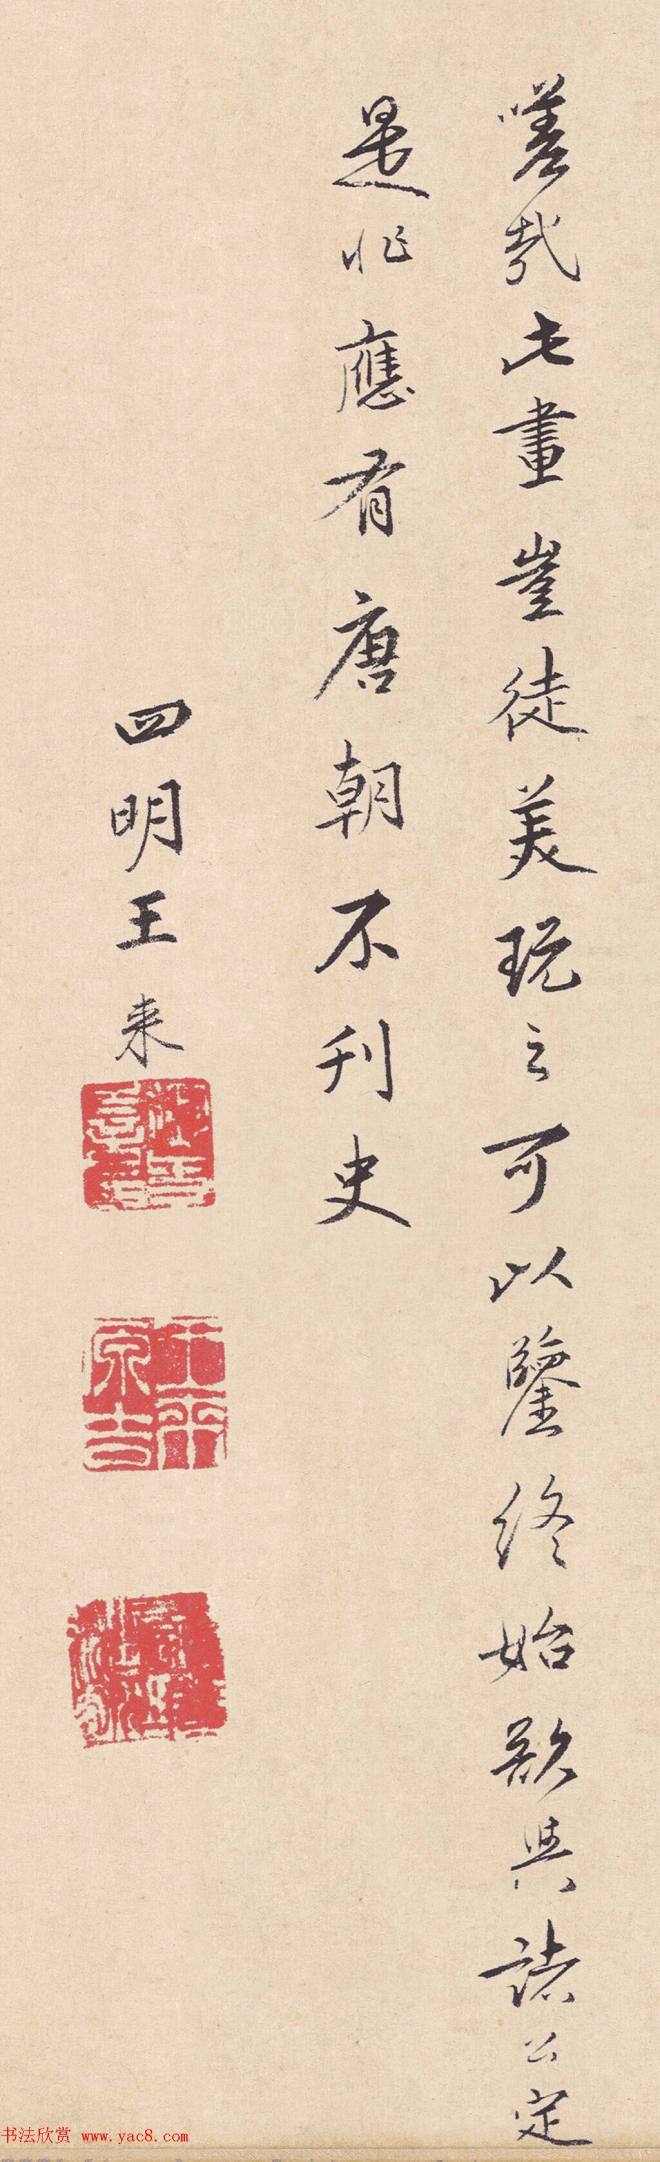 嗟哉此畫豈徒美玩之可以鑒終始欲與諸公定
是非應有唐朝不刊史
四明王来
书法欣赏 www.yac8.com